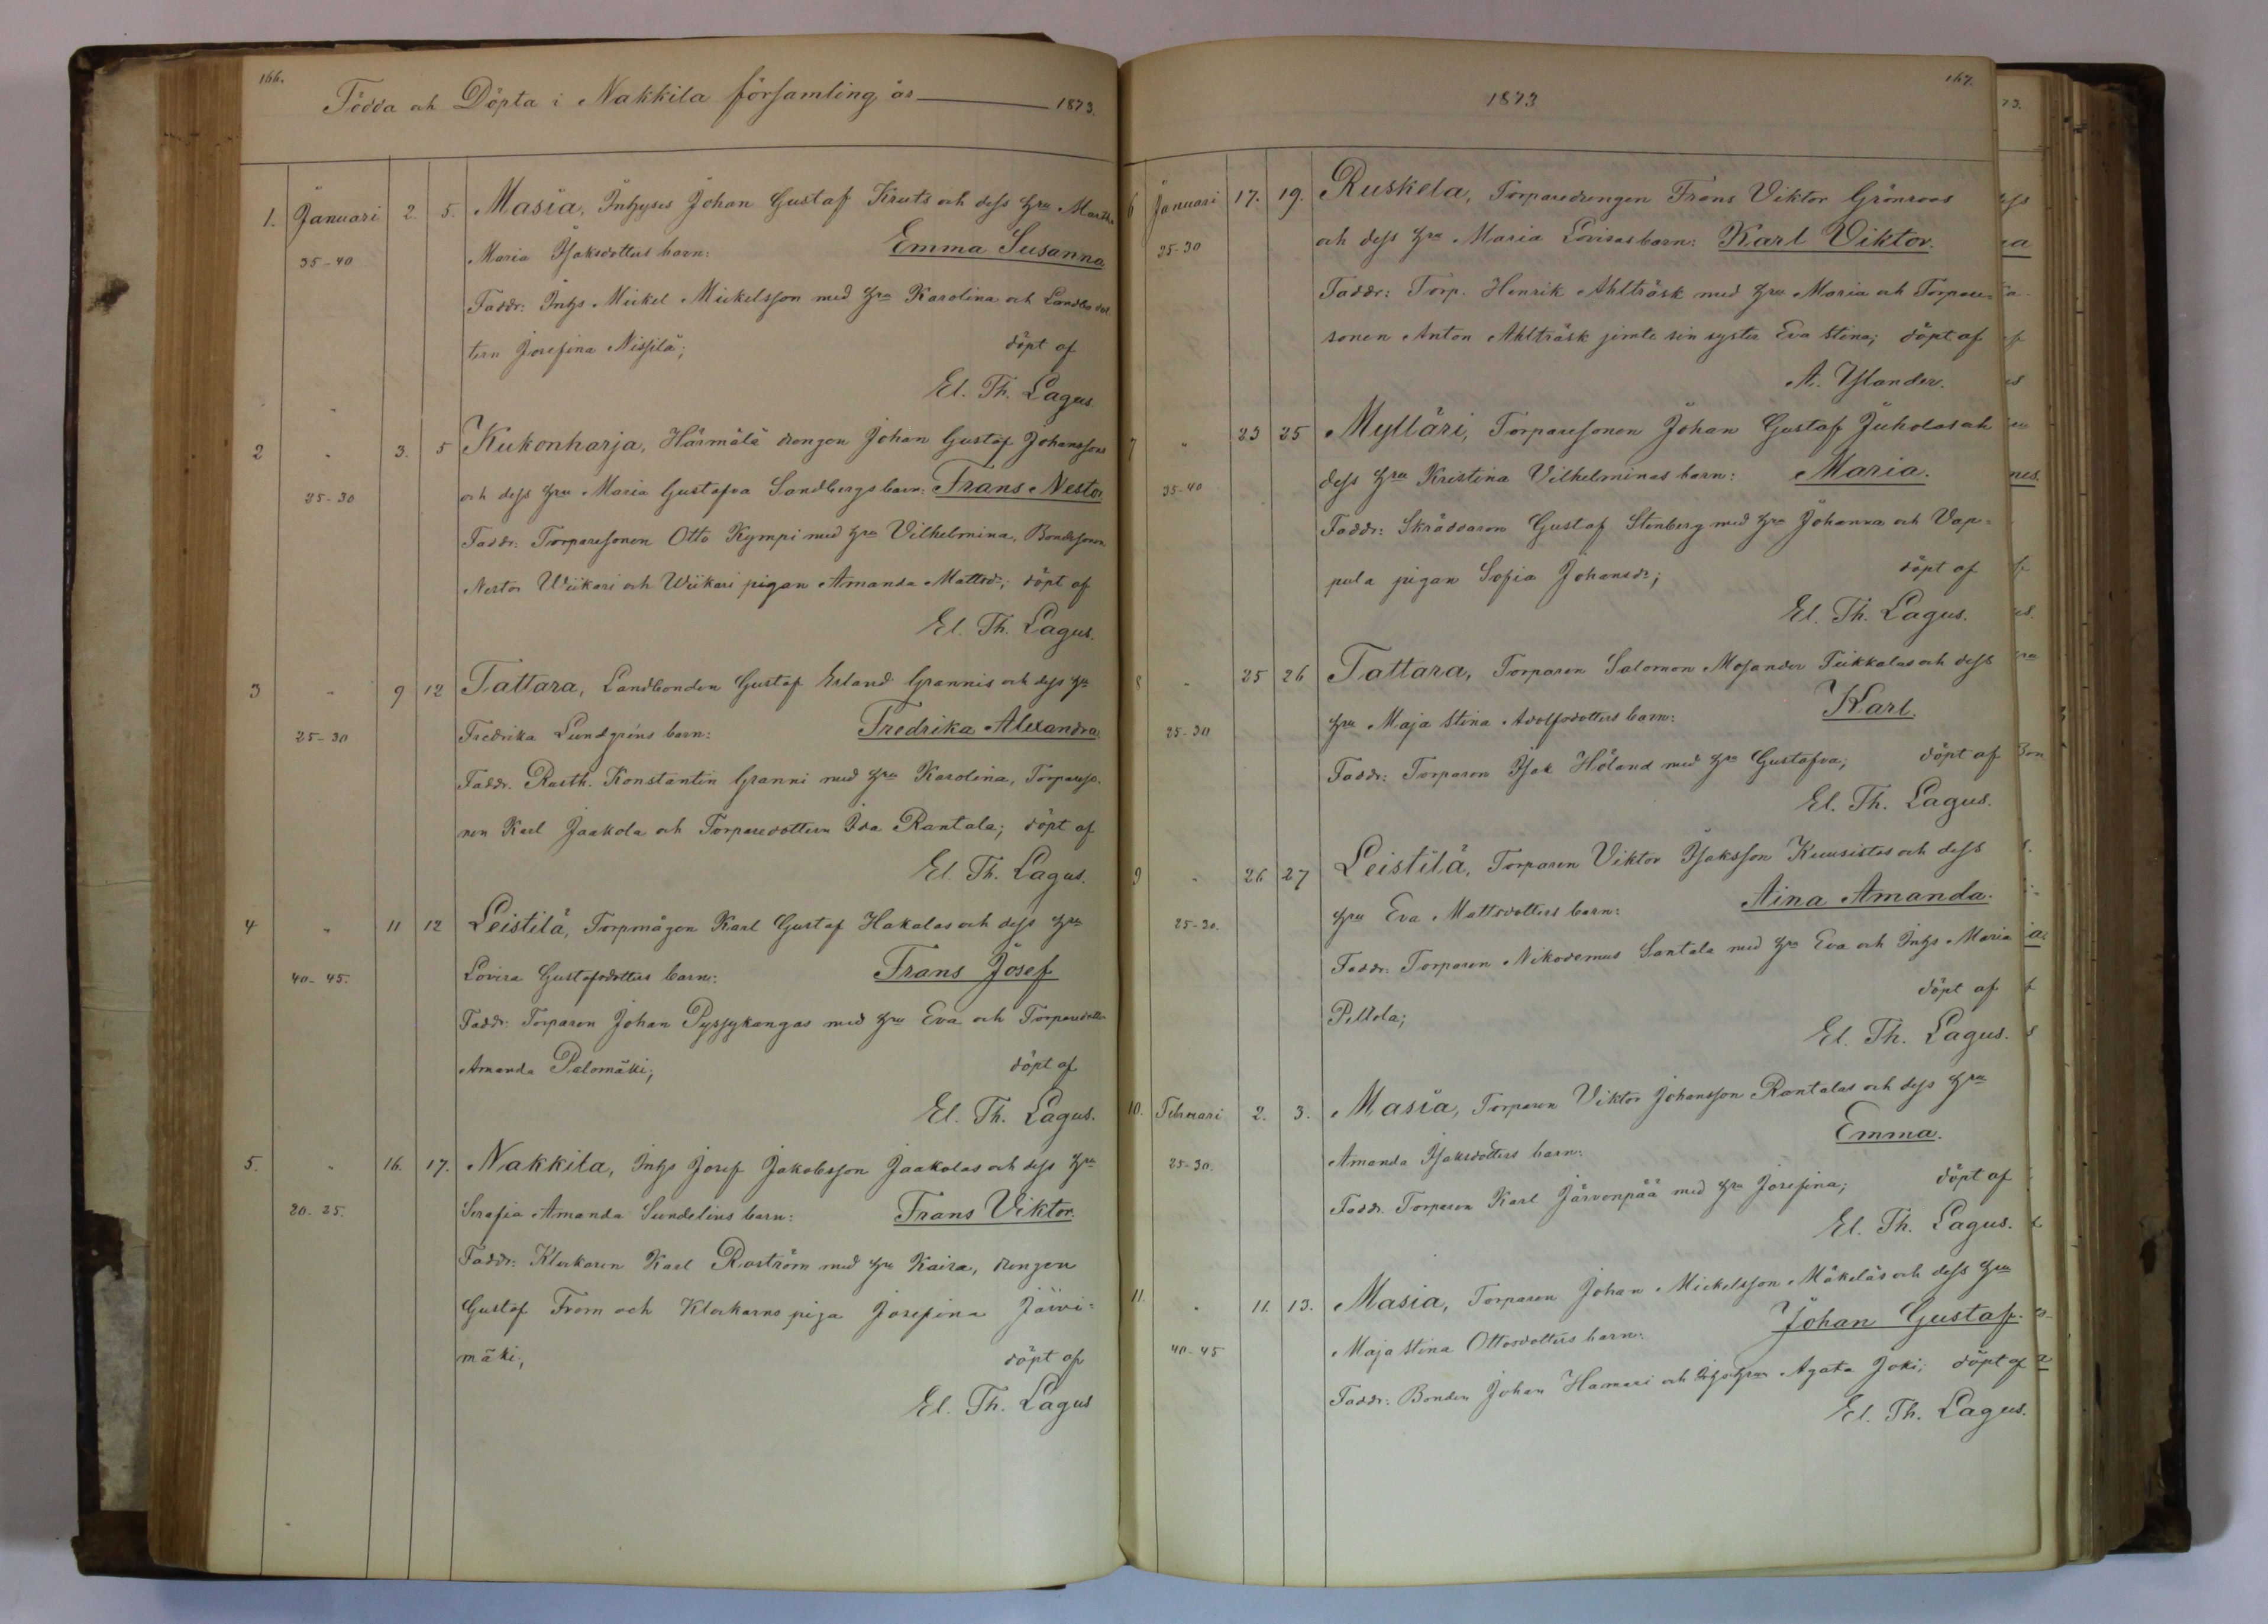 166.
Födda och Döpta i Nakkila församling år 1873.
1. Januari 2. 5. Masia, Inhyses Johan Gustaf Kruts och dess hru Martha
35-40 Maria Isaksdotters barn: Emma Susanna.
Faddr: Inhs Mickel Mickelsson med hru Karolina och Landbodot
tern Josefina Nissilä; döpt af
El. Th. Lagus.
2 " 3. 5 Kukonharja, Härmälä drengen Johan Gustaf Johanssons
25-30 och dess hru Maria Gustafva Sandbergs barn: Frans Nestor
Faddr: Torparesonen Otto Kympi med hru Vilhelmina, Bondesonen
Nestor Wiikari och Wiikari pigan Amanda Mattsdr; döpt af
El. Th. Lagus.
3 " 9 12 Tattara, Landbonden Gustaf Erland Grannis och dess hru
25-30 Fredrika Lundgréns barn: Fredrika Alexandra.
Faddr. Rusth. Konstantin Granni med hru Karolina, Torpareso-
nen Karl Jaakola och Torparedottern Ida Rantala; döpt af
El. Th. Lagus.
4 " 11 12 Leistilä, Torpmågen Karl Gustaf Hakalas och dess hru
40-45. Lovisa Gustafsdotters barn: Frans Josef
Faddr: Torparen Johan Pyssykangas med hru Eva och Torparedotter
Amanda Palomäki; döpt af
El. Th. Lagus.
5. " 16. 17. Nakkila, Inhs Josef Jakobsson Jaakolas och dess hru
20-25. Serafia Amanda Sundelins barn: Frans Viktor.
Faddr: Klockaren Karl Roström med hru Kaisa, drengen
Gustaf From och Klockarns piga Josefina Järvi=
mäki; döpt af
El. Th. Lagus
167.
1873
6 Januari 17. 19. Ruskela, Torparedrengen Frans Viktor Grönroos
25-30 och dess hru Maria Lovisas barn: Karl Viktor.
Faddr: Torp. Henrik Ahlträsk med hru Maria och Torpare=
sonen Anton Ahlträsk jemte sin syster Eva Stina; döpt af
A. Yllander.
7 " 23 25 Mylläri, Torparesonen Johan Gustaf Juholas och
35-40 dess hru Kristina Vilhelminas barn: Maria.
Faddr: Skräddaren Gustaf Stenberg med hru Johanna och Vap=
pula pigan Sofia Johansdr; döpt af
El. Th. Lagus.
8 " 25 26 Tattara, Torparen Salomon Mosander Tiikkalas och dess
25-30 hru Maja Stina Adolfsdotters barn: Karl.
Faddr: Torparen Isak Höland med hru Gustafva; döpt af
El. Th. Lagus.
9 " 26 27 Leistilä, Torparen Viktor Isaksson Kuusistos och dess
25-30. hru Eva Mattsdotters barn: Aina Amanda.
Faddr: Torparen Nikodemus Santala med hru Eva och Inhs Maria
Peltola; döpt af
El. Th. Lagus.
10. Februari 2. 3. Masia, Torparen Viktor Johansson Rantalas och dess hru
25-30. Amanda Isaksdotters barn: Emma.
Faddr. Torparen Karl Järvenpää med hru Josefina; döpt af
El. Th. Lagus.
11. " 11. 13. Masia, Torparen Johan Mickelsson Mäkeläs och dess hru
40-45 Maja Stina Ottosdotters barn: Johan Gustaf.
Faddr: Bonden Johan Hamari och Inhs hru Agata Joki; döpt af
El. Th. Lagus.